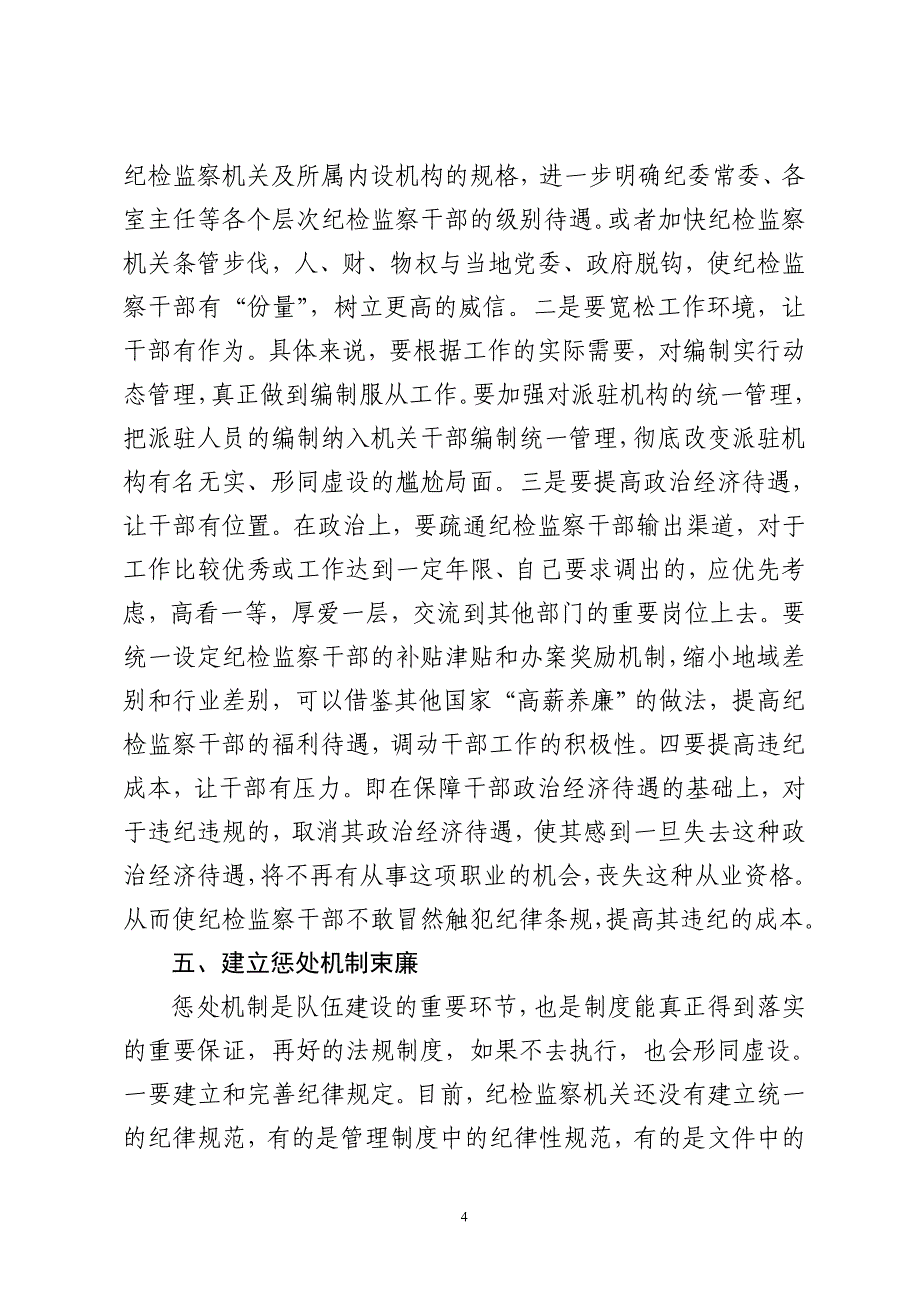 纪检监察机关及所属内设机构的规格，进一步明确纪委常委、各
室主任等各个层次纪检监察干部的级别待遇。或者加快纪检监察
机关条管步伐，人、财、物权与当地党委、政府脱钩，使纪检监
察干部有“份量”，树立更高的威信。二是要宽松工作环境，让
干部有作为。具体来说，要根据工作的实际需要，对编制实行动
态管理，真正做到编制服从工作。要加强对派驻机构的统一管理，
把派驻人员的编制纳入机关干部编制统一管理，彻底改变派驻机
构有名无实、形同虚设的尴尬局面。三是要提高政治经济待遇，
让干部有位置。在政治上，要疏通纪检监察干部输出渠道，对于
工作比较优秀或工作达到一定年限、自己要求调出的，应优先考
虑，高看一等，厚爱一层，交流到其他部门的重要岗位上去。要
统一设定纪检监察干部的补贴津贴和办案奖励机制，缩小地域差
别和行业差别，可以借鉴其他国家“高薪养廉”的做法，提高纪
检监察干部的福利待遇，调动干部工作的积极性。四要提高违纪
成本，让干部有压力。即在保障干部政治经济待遇的基础上，对
于违纪违规的，取消其政治经济待遇，使其感到一旦失去这种政
治经济待遇，将不再有从事这项职业的机会，丧失这种从业资格。
从而使纪检监察干部不敢冒然触犯纪律条规，提高其违纪的成本。
五、建立惩处机制束廉
惩处机制是队伍建设的重要环节，也是制度能真正得到落实
的重要保证，再好的法规制度，如果不去执行，也会形同虚设。
一要建立和完善纪律规定。目前，纪检监察机关还没有建立统一
的纪律规范，有的是管理制度中的纪律性规范，有的是文件中的
4